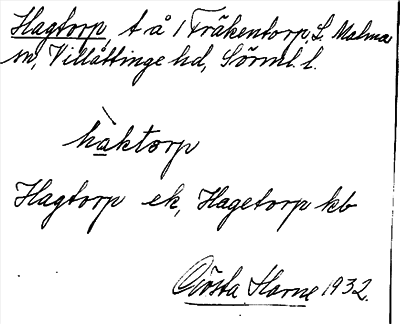 Hagtorp, t å 1 Fräkentorp, L. Malma
sn, Villåttinge hd, Sörml. l.
hàktɷrp
Hagtorp ek, Hagetorp kb
Gösta Harne 1932.